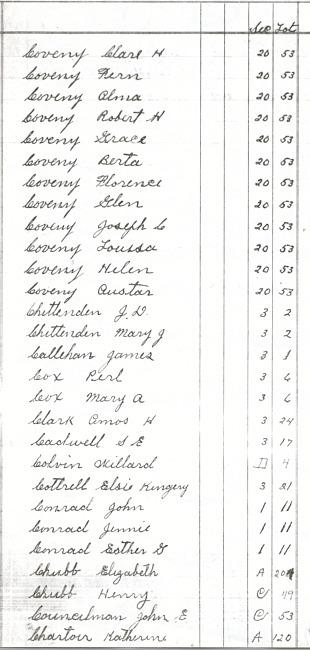 Sec Lot
Coveny Clare H 20 53
Coveny Fern 20 53
Coveny Alma 20 53
Coveny Robert H 20 53
Coveny Grace 20 53
Coveny Berta 20 53
Coveny Florence 20 53
Coveny Glen 20 53
Coveny Joseph C 20 53
Coveny Loussa 20 53
Coveny Helen 20 53
Coveny Custar 20 53
Chittenden J. D. 3 2
Chittenden Mary J 3 2
Callehan James 3 1
Cox Perl 3 6
Cox Mary A 3 6
Clark Amos H 3 24
Cadwell S E 3 17
Colvin Willard D 4
Cottrell Elsie Kingery 3 21
Conrad John 1 11
Conrad Jennie 1 11
Conrad Esther G 1 11
Chubb Elizabeth A 204
Chubb Henry C 49
Councilman John E C 53
Chartoir Katherine A 120